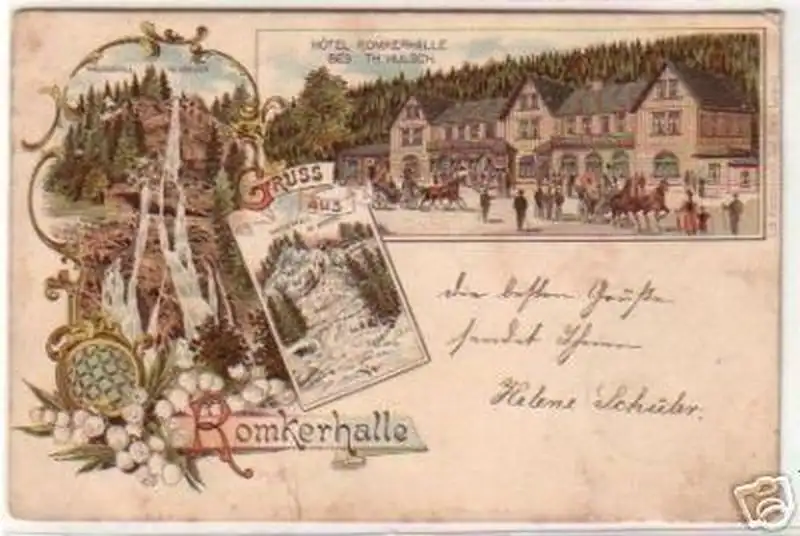 HÔTEL ROMKERHALLE
BES. TH. HULSCH.
GRUSS
AUS
Romkerhalle
die besten Grüße
sendet Ihnen
Helene Schüler.